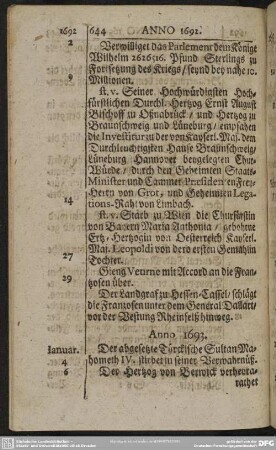 1692 644 ANNO 1692.
2 Verwilliget das Parlement dem Könige
Wilhelm 2626516. Pfund Sterlings zu
Fortsetzung des Kriegs / seynd bey nahe 10.
9 Millionen.
st. v. Seiner Hochwürdigsten Hoch-
fürstlichen Durchl. Hertzog Ernst August
Bischoff zu Oßnabrück / und Hertzog zu
Braunschweig und Lüneburg / empfahen
die Investitur der von Kayserl. Maj. dem
Durchleuchtigsten Hause Braunschweig/
Lüneburg Hannover beygelegten Chur-
Würde / durch den Geheimten Staats-
Minister und Cammer-Præsidenten Frey-
Herrn von Grot / und Geheimten Lega-
14 tions-Raht von Limbach.
st. v. Starb zu Wien die Churfürstin
von Bayern Maria Anthonia / gebohrne
Ertz-Hertzogin von Oesterreich Kayserl.
Maj. Leopoldi von dero ersten Gemahlin
27 Tochter.
Gieng Veurne mit Accord an die Fran-
29 tzosen über.
Der Landgraf zu Hessen-Cassel / schlägt
die Frantzosen unter dem General Tallart/
vor der Vestung Rheinfelß hinweg.
Anno 1693.
Ianuar. Der abgesetzte Türckische Sultan Ma-
4 hometh IV. stirbet in seiner Verwahrnüß.
6 Der Hertzog von Berwick verheyra-
rathet